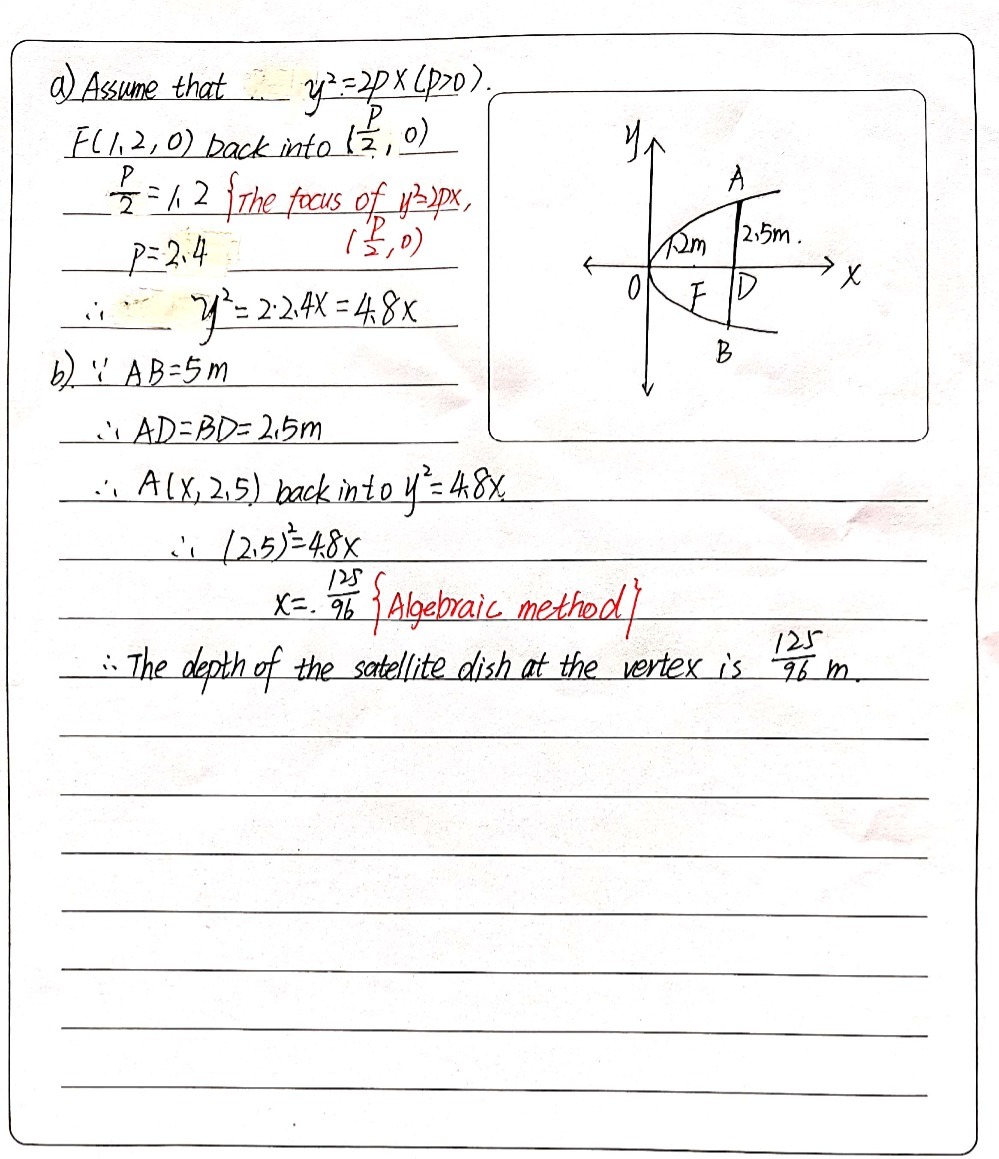 a) Assume that y²=2px (p>0).
F(1.2, 0) back into (p/2, 0)
p/2 = 1.2 {The focus of y²=2px,
p=2.4 (p/2, 0)
∴ y²=2·2.4x=4.8x
b) ∵ AB=5m
∴ AD=BD=2.5m
∴ A(x, 2.5) back into y²=4.8x
∴ (2.5)²=4.8x
x= 125/96 {Algebraic method}
∴ The depth of the satellite dish at the vertex is 125/96 m.
y
A
1.2m 2.5m.
O F D x
B